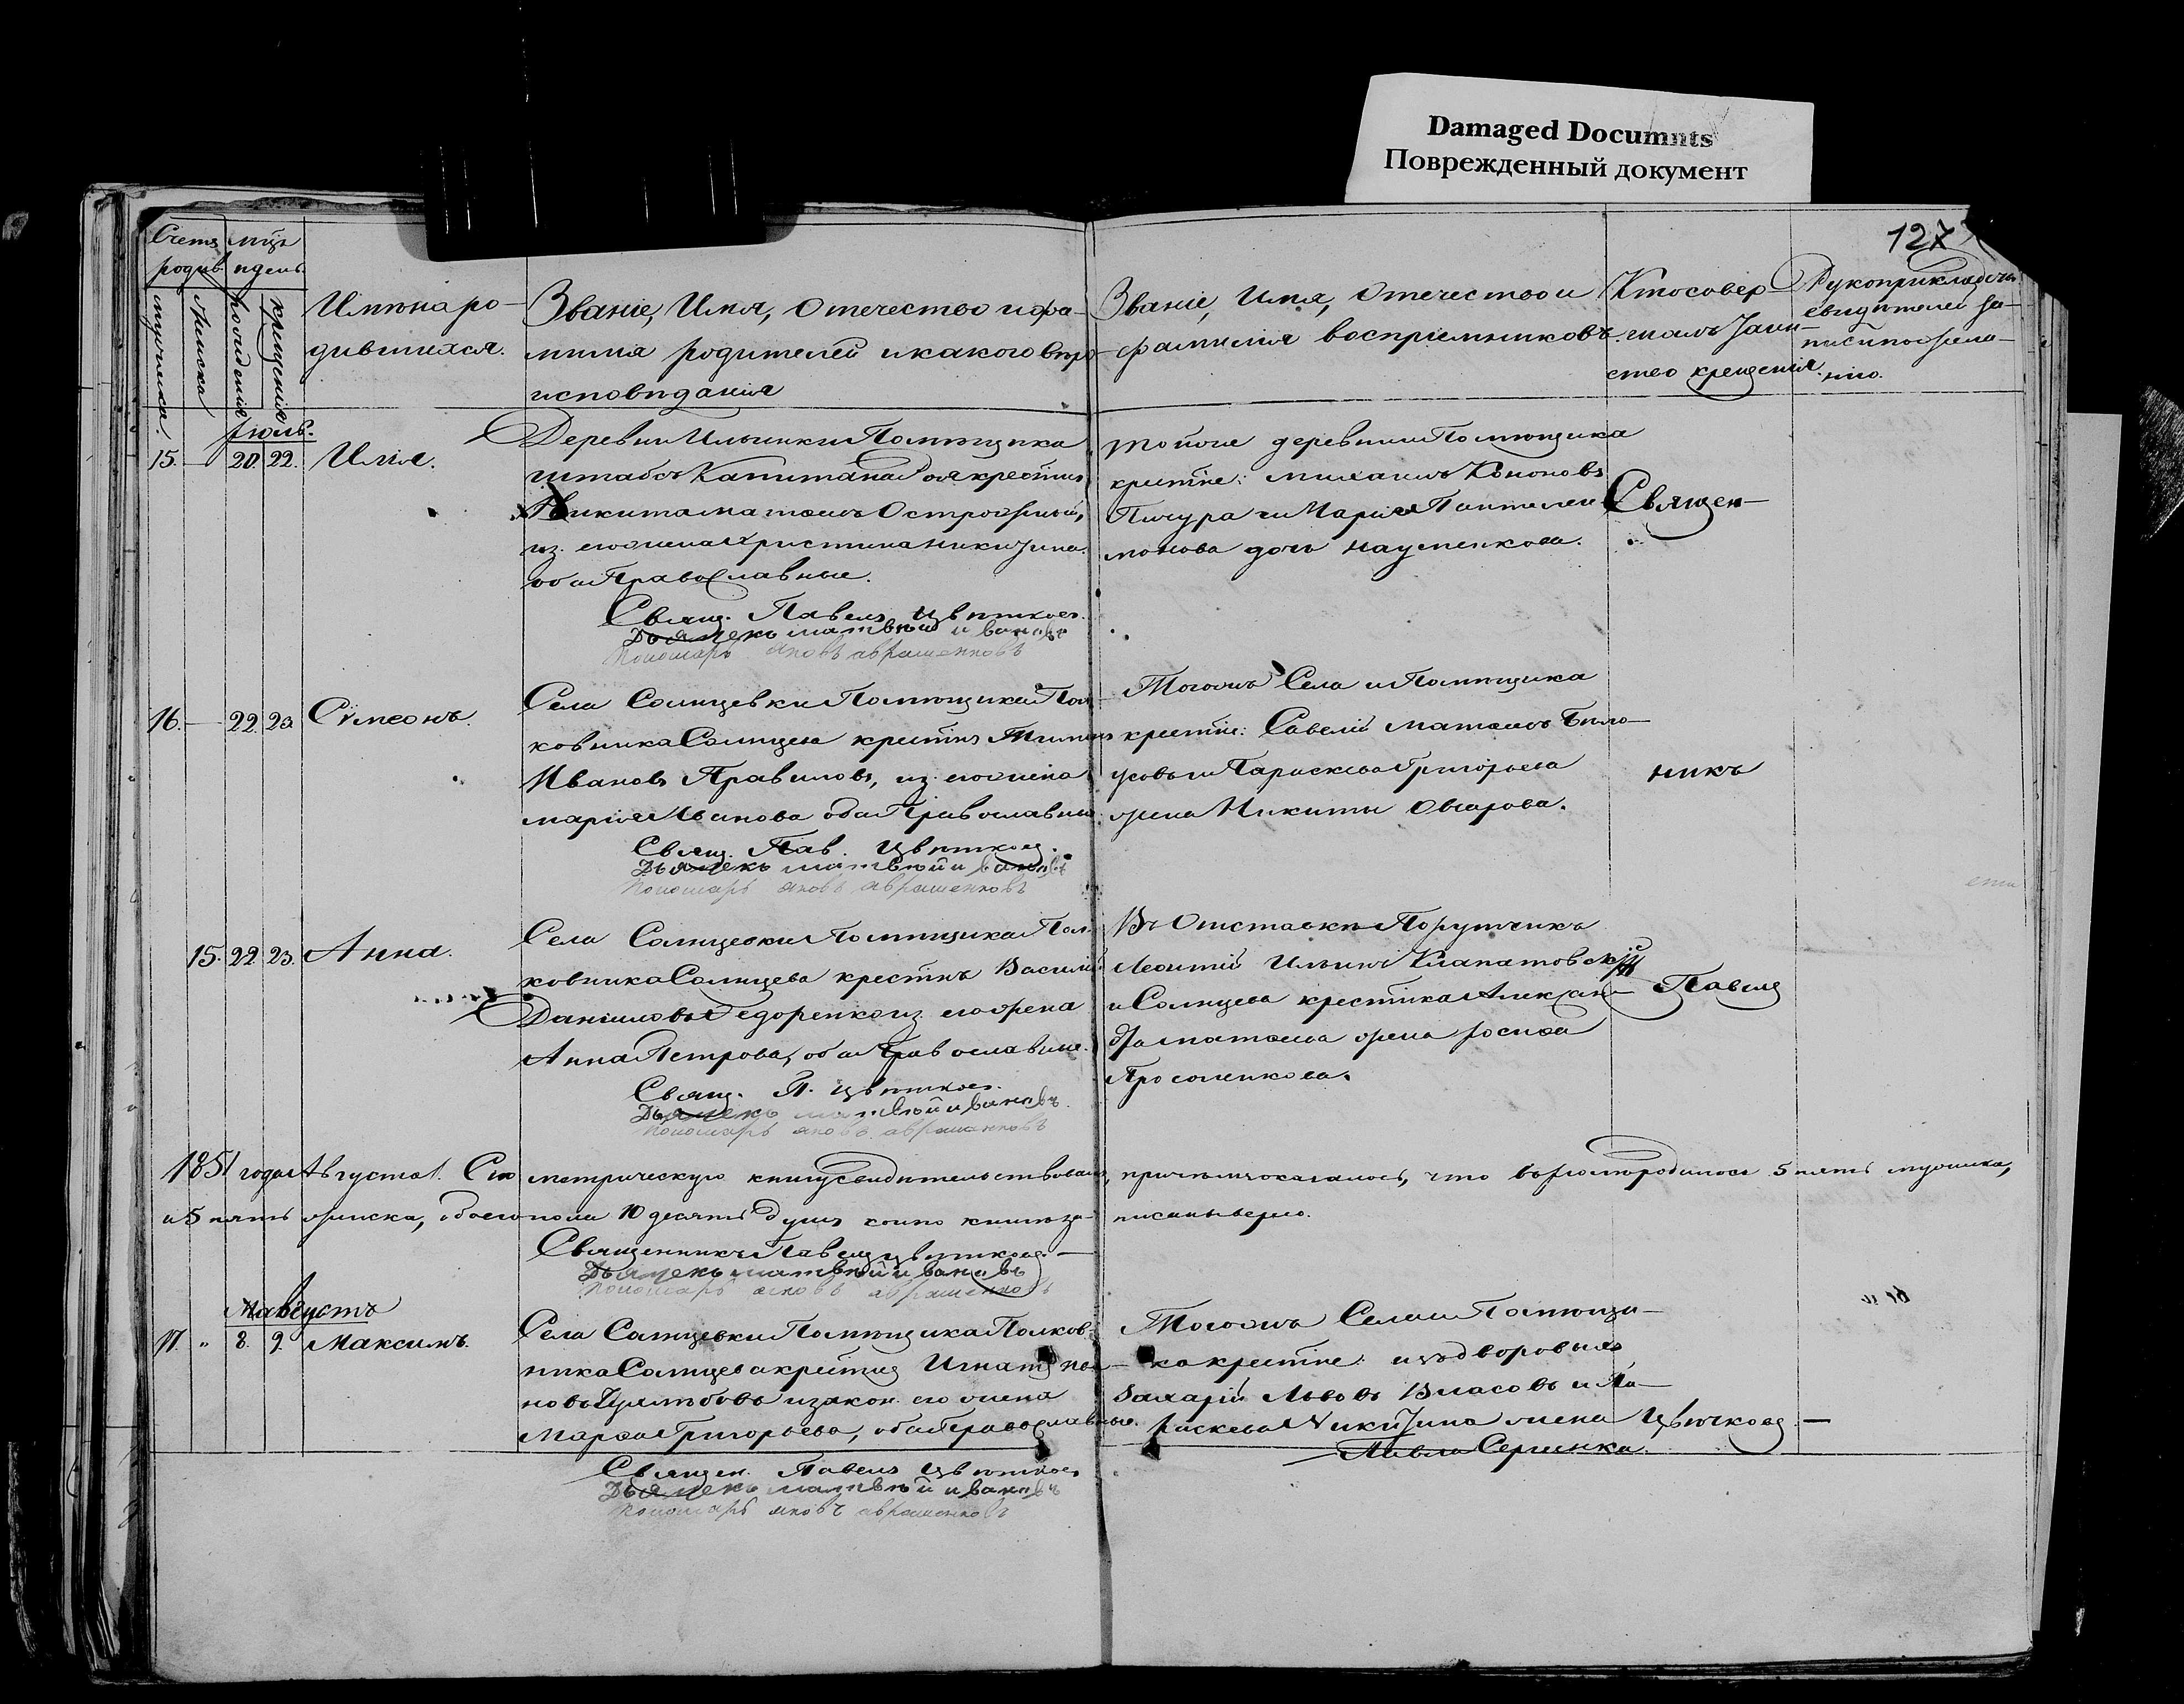 Damaged Documnts
Поврежденный документ
127
Счетъ
родив.
мцъ
и день.
мужеска.
женска
рожденія
крещенія
Имяна ро-
дившихся.
Званіе, Имя, Отечество и фа-
милія родителей и какого вѣро-
исповѣданія
Званіе, Имя, Отечество и
фамилія воспріемниковъ.
Кто совер-
шалъ Таин-
ство крещенія.
Рукоприкладство
свидѣтелей за-
писи по жела-
нію.
Іюль.
15. — 20. 22. Илія.
Деревни Ильинки Помѣщика
штабсъ Капитана крестнъ
Никита Остроожный,
из. его жена Христина Никитина.
оба Православные.
Свящ. Павелъ Цвѣтковъ.
Дьячекъ матвѣй ивановъ
Пономарь яковъ аврашенковъ
тойже деревни и Помѣщика
крестне: Михаилъ Кононовъ
Пичура и Марія Пантелеи-
монова дочь Науменкова.
Священ-
16. — 22. 23. Сѵмеонъ.
Села Солнцевки Помѣщика Пол-
ковника Солнцева крестнъ
Ивановъ Правиловъ, из. его жена
марія Иванова оба Православные.
Свящ. Пав. Цвѣтковъ.
Дьячекъ матвѣй ивановъ
Пономарь яковъ аврашенковъ
Тогожъ Села и Помѣщика
крестне: Савелій Бѣло-
усовъ и Параскева Григорьева
жена Никиты Овчарова.
никъ
15. 22. 23. Анна.
Села Солнцевки Помѣщика Пол-
ковника Солнцева крестнъ Василій
Даніиловъ Федоренко из. его жена
Анна Петрова, оба Православные.
Свящ. П. Цвѣтковъ.
Дьячекъ матвѣй ивановъ
Пономарь яковъ аврашенковъ
Въ Отставкѣ Порутчикъ
Леонтій Ильинъ
и Солнцева крестнка Алексан-
дра жена
Павелъ
1851 года Августа 1. Сію метрическую книгу свидѣтельствовали, причемъ оказалось, что въ родилось 5 пять мужеска,
и 5 пять женска, обоего пола 10 десять душъ коихъ за- писаны верно.
Священникъ Павелъ Цвѣтковъ.
Дьячекъ матвѣй ивановъ
Пономарь яковъ аврашенковъ
Августъ
17. " 8. 9. Максимъ.
Села Солнцевки Помѣщика Полков-
ника Солнцева крестнъ Игнатъ
и закон. его жена
Марѳа Григорьева, оба Православные.
Священ. Павелъ Цвѣтковъ
Дьячекъ матвѣй ивановъ
Пономарь яковъ аврашенковъ
Тогожъ Села и Помѣщи-
ка крестне: изъ дворовыхъ
Захарій Львовъ Власовъ и Па-
раскева Никитина жена
Павла Сергинка.
Цвѣтковъ. —